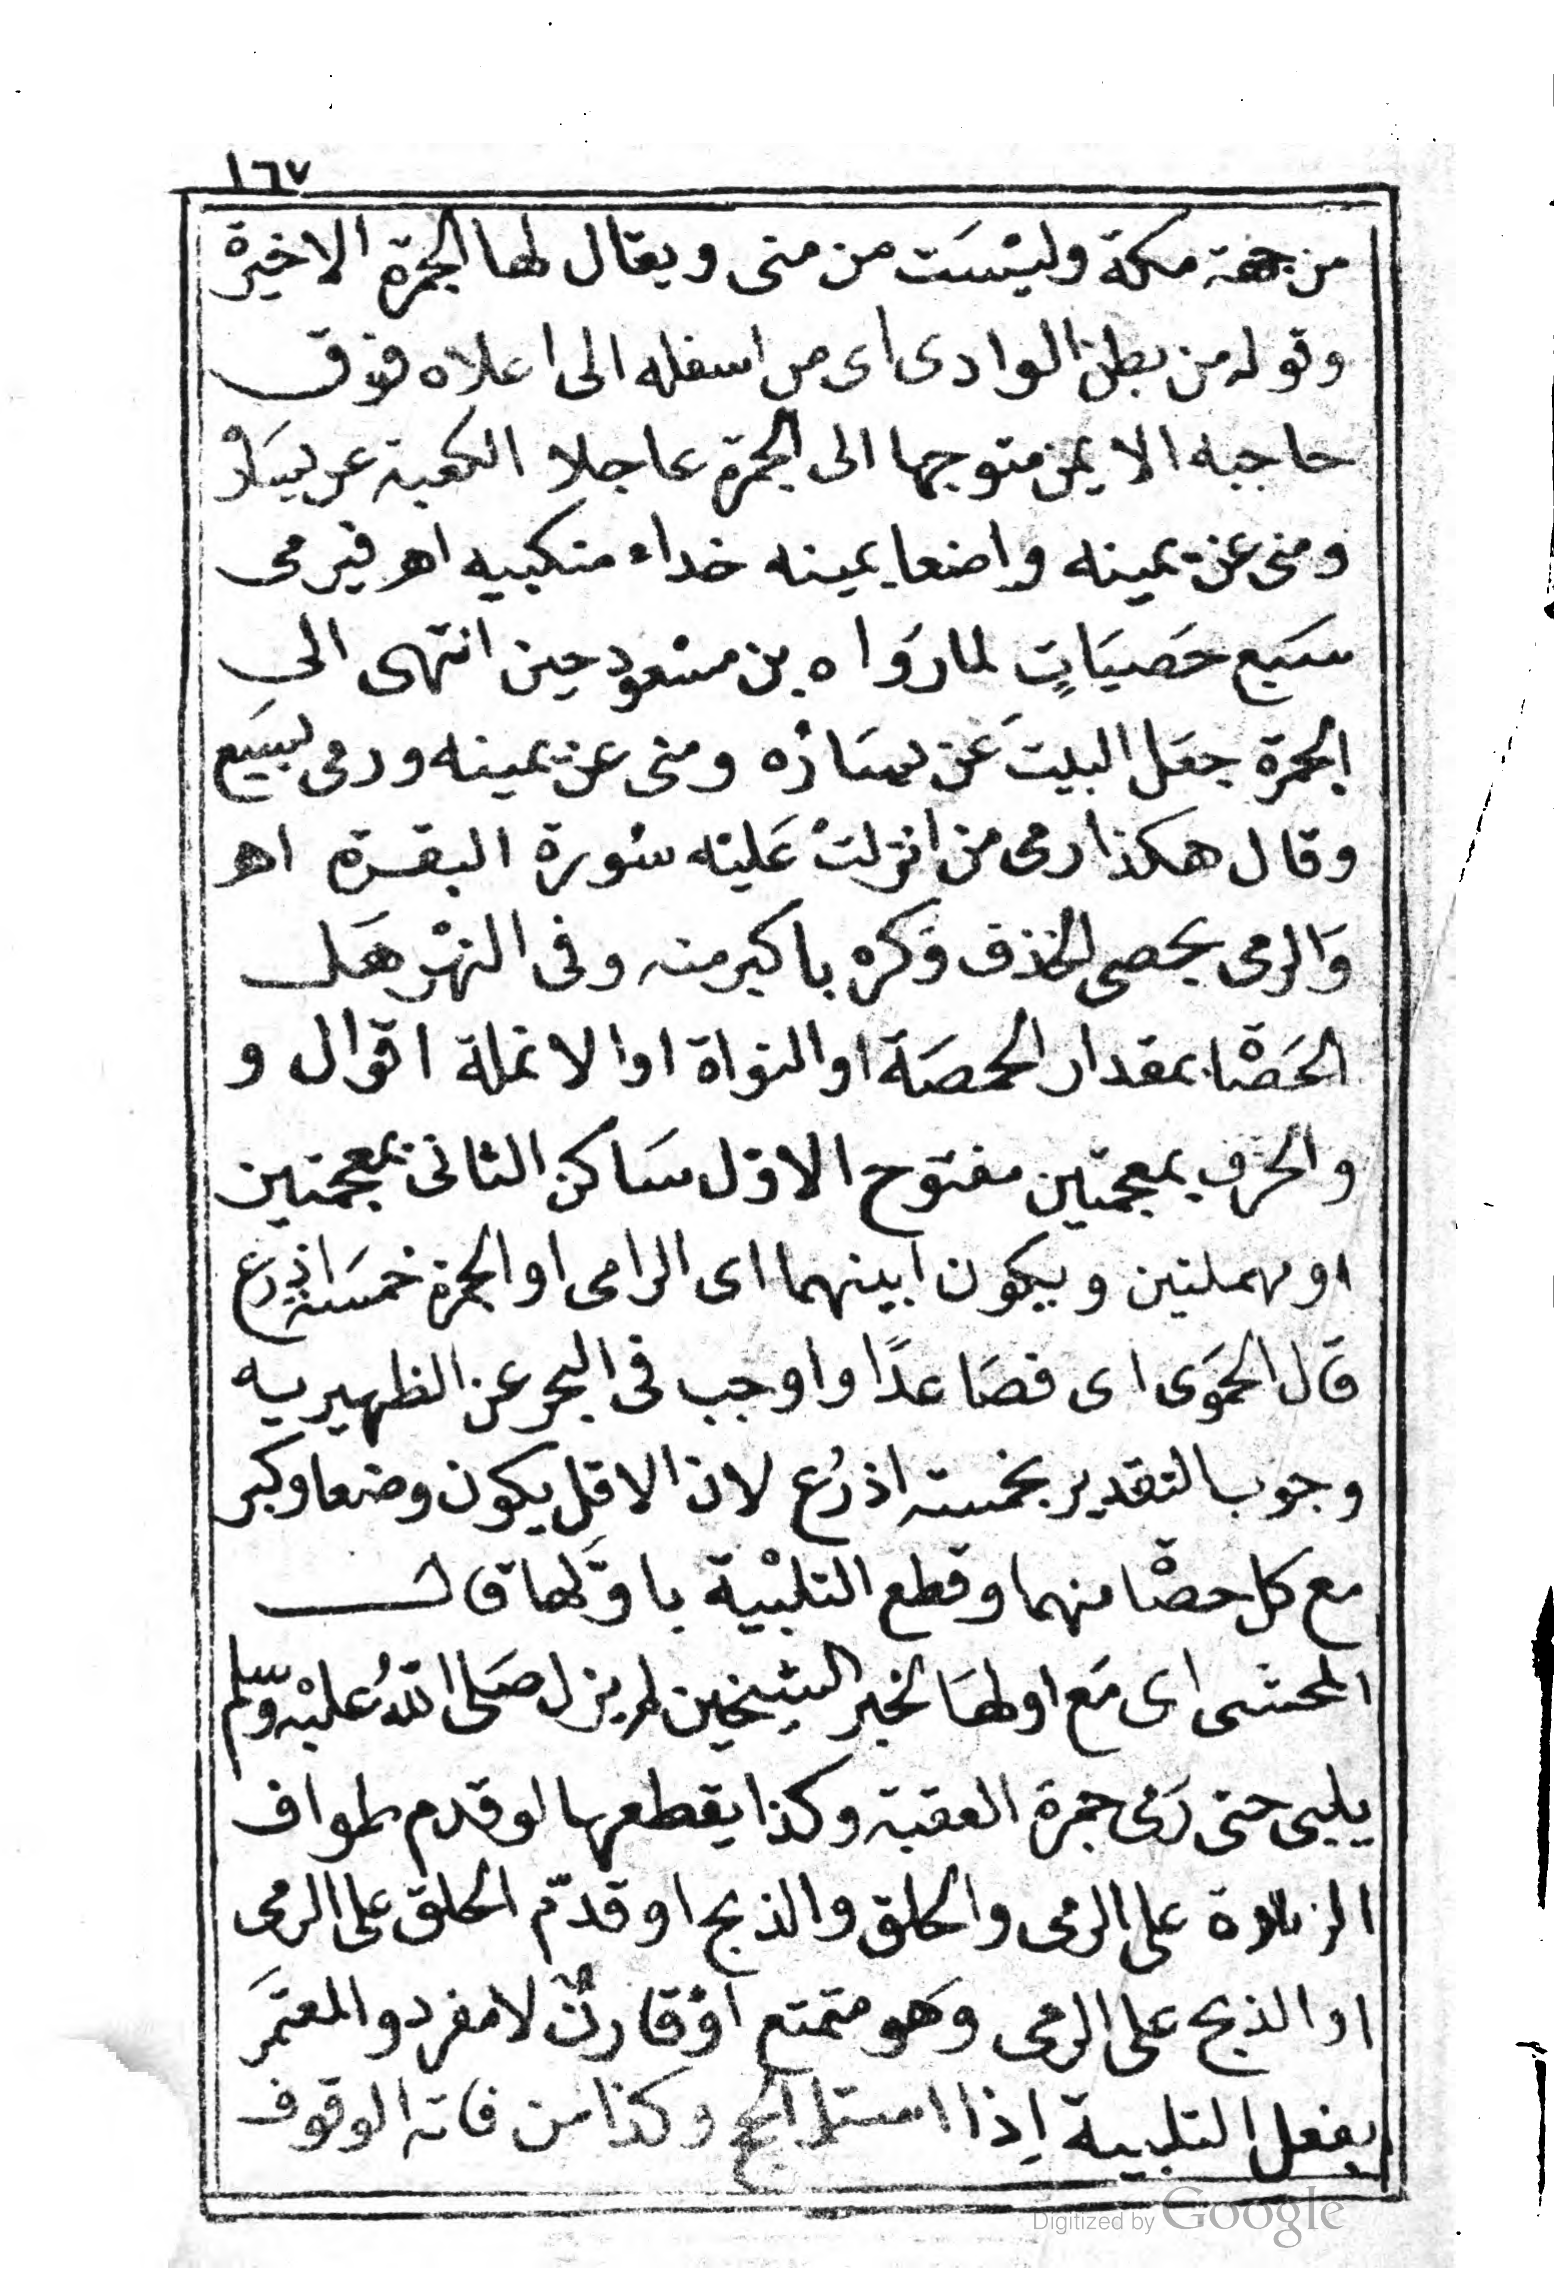 ١٦٧
من جهة مكة وليْسَت من منى ويقال لها الجمرة الاخيرة
وقوله من بطن الوادى اى من اسفله الى اعلاه فوق
حاجبه الايمن متوجها الى الجمرة عاجلا الكعبة عن يسَاره
ومنى عن يمينه واضعا يمينه خداء منكبيه اھ فيرمى
سَبع حَصيَاتٍ لما رَواه بن مسْعودٍ حين انتهى الى
الجمرة جعَل البيتَ عَن يسَارُه ومنى عن يمينه ورمى بسَبع
وقال هكذا رمى من انزلتْ عَليْه سُورة البقرة اھ
وَالرمى بحصى الخذف وَكره باكبر منه وفى النهْر هَل
الحَصْاة بمقدار الحمصَة او النواة او الانملة اقوال و
والخزف بمعجمتين مفتوح الاوّل سَاكن الثانى بمعجمتين
او مهملتين ويكون ابينهما اى الرامى او الجمرة خمسَة اذرع
قال الحمَوى اى فصَاعدًا واوجب فى البحر عن الظهيريه
وجوب التقدير بخمسة اذرُع لان الاقل يكون وضعا وكبر
مع كل حصْاة منهما وقطع التلبْية باوّلها قال
المحشى اى مَع اولهَا لخبر الشيخين لم يزل صَلى اللهُ عليْه وسّلم
يلبى حتى رَمى جمرة العقبة وكذا يقطعها لو قدم طواف
الزيارة على الرمى والحلق والذبح او قدّم الحلق على الرمى
او الذبح على الرمى وَهو متمتع اوْ قارنٌ لا مفرد والمعتمَر
يفعل التلبية اِذا استلم الحج وكذا من فاته الوقوف
Digitized by Google